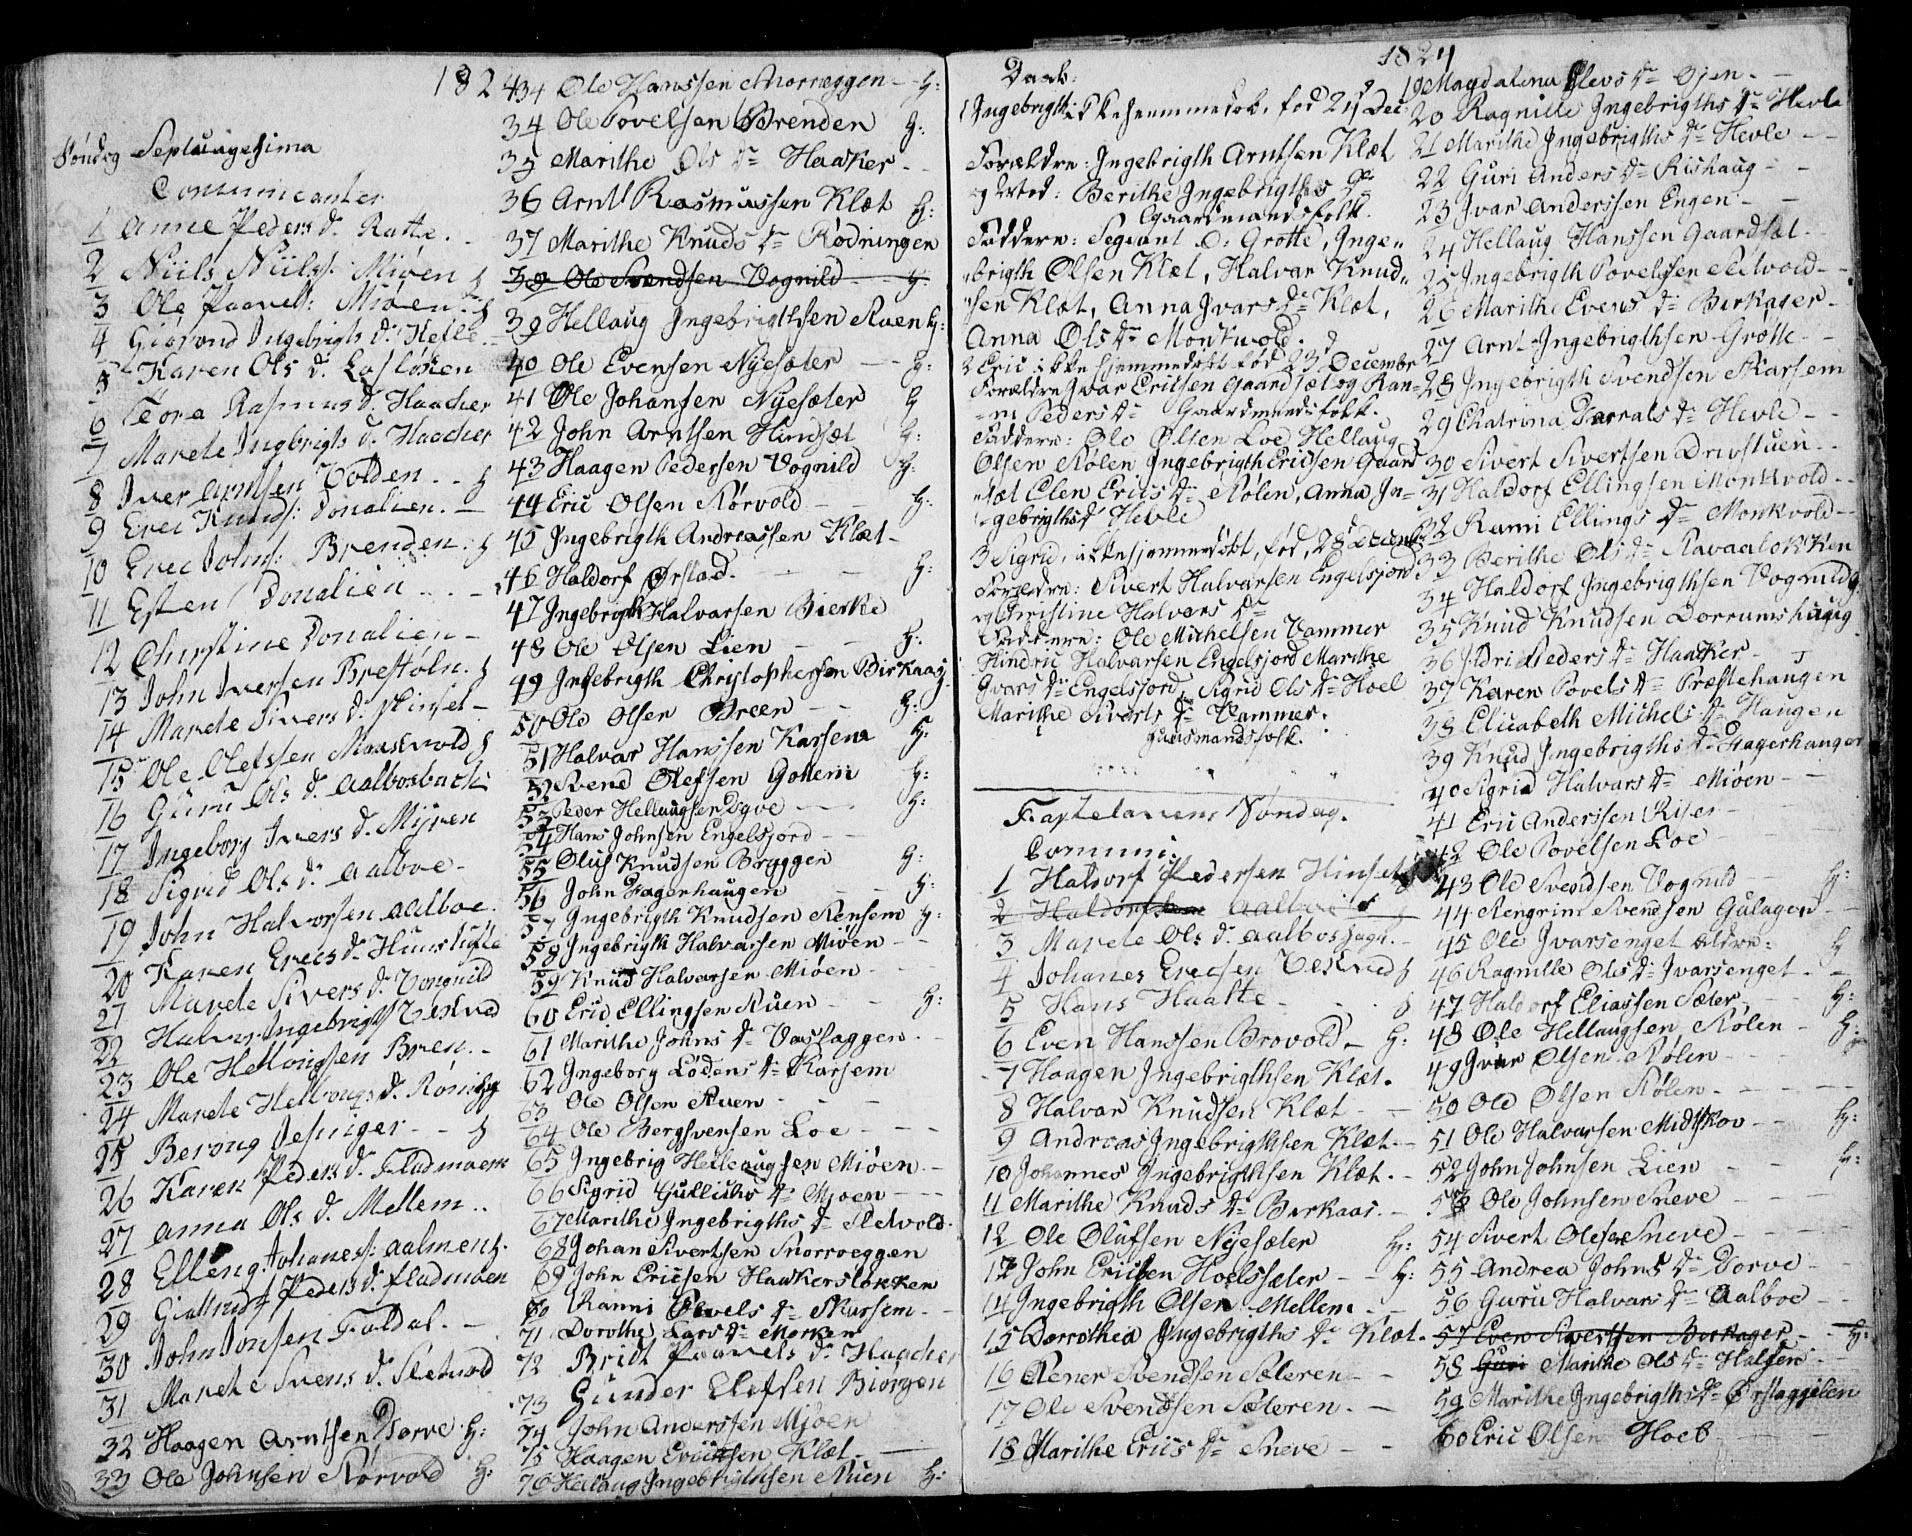 1824
Søndag Septuagesima
Communicanter
1 Anne Peders d. Ratte.
2 Niils Niilss: Miøen H
3 Ole Paavels: Miøen. H
4 Giørond Ingebrigts d. Hevle
5 Karen Ols d. Lasløkken
6 Tora Rasmus d. Haacker
7 Marete Ingbrigts d. Haacker
8 Iver Arntsen Volden .. H
9 Erec Knuds: Donalien. -
10 Erec Johns: Brenden. H
11 Esten Donalien
12 Christine Donalien -
13 John Iversen Brestøln. H
14 Marete Sivers d. Hinset -
15 Ole Olefssen Maaskvold H
16 Guru Ols d. Aalbosbach
17 Ingeborg Ivers d. Mÿren
18 Sigrid Ols d. Aalboe -
19 John Halvorsen Aalboe.
20 Karen Erecs d. Huusligte
21 Marete Sivers d. Vongnild
22 Halvor Ingebrigts Veskved
23 Ole Hellougsen Bren. -
24 Marete Hellougs d. Rønigg
25 Beroug Jesinger - - H
26 Karen Peders d. Fladmoen
27 Anna Ols d. Mellem ..
28 Elleng Johaness: Aalmen H.
29 Giertrud Peders d. Fladmoen
30 John Jonsen Faldal. -
31 Marete Svens d. Sletvold
32 Haagen Arntsen Dorve H:
33 Ole Johnsen Nørvold H:
34 Ole Hanssen Snorreggen - - H:
34 Ole Povelsen Brenden H:
35 Marithe Ols Dr Haaker - -
36 Arnt Rasmussen Klæt H:
37 Marithe Knuds Dr Rødningen
38 Ole Svendsen Vognild H
39 Hellaug Ingebrigthsen Ruen H:
40 Ole Evensen Nyesæter - - H:
41 Ole Johansen Nyesæter H
42 John Arntsen Hindsæt H:
43 Haagen Pedersen Vognild H:
44 Eric Olsen Nørvold - - H:
45 Ingebrigth Andreassen Klæt -
46 Haldorf Ørstad. - - H:
47 Ingebrigth Halvarsen Bierke
48 Ole Olsen Lien - - H:
49 Ingebrigth Christophersen Birkaag
50 Ole Olsen Breen - - H:
51 Halvar Hanssen Karsem H:
52 Svend Olefsen Gollem H:
53 Peder Hellaugsen Dyve - - H:
54 Hans Johnsen Engelsjord - -
55 Oluf Knudsen Bryggen H:
56 John Fagerhaugen - - H:
57 Ingebrigth Knudsen Stensem H:
58 Ingebrigth Halvarsen Miøen - -
59 Knud Halvarsen Miøen - - -
60 Eric Ellingsen Ruen - - H:
61 Marithe Johns Dr Vaslaggen - -
62 Ingeborg Lødens Dr Karsem
63 Ole Olsen Ruen - - -
64 Ole Bergsvensen Loe - - -
65 Ingebrig Hellaugsen Miøen. -
66 Sigrid Gullichs Dr Mjøen - - -
67 Marithe Ingebrigths Dr Sletvold.
68 Johan Sivertsen Snorroeggen
69 John Ericsen Haakersløkken
70 Ranni Povels Dr Skarsem. - -
71 Dorothe Lars Dr Morken
72 Bridt Paavels d. Haacker
73 Gunder Elefsen Biørgen
74 John Anderssen Mjøen
75 Haagen Ericksen Klæt. -
76 Hellaug Ingebrigthsen Ruen H:
1824
Daab:
1 Ingebrigth ikke hiemmedøb. fød 21 Dec:
Forældre: Ingebrigth Arntsen Klæt
og Moder: Berithe Ingebrigths Dr
Gaardmandsfolk.
Faddere: Segeant O: Grøtte, Inge„
„brigth Olsen Klæt, Halvar Knud„
„sen Klæt, Anna Ivars Dr Klæt,
Anna Ols Dr Monkvold.
2 Eric ikke hjemmedøbt fød 23 December
Forældre Ivar Ericsen Gaardsæt og Ran=
=ni Peders Dr Gaardmandsfolk.
Faddere: Ole Olsen Loe Hellaug
Olsen Stølen Ingebrigth Ericsen Gaard
sæt Elen Erics Dr Stølen, Anna In=
=gebrigths Dr Hevle
3 Sigrid, ikke hjemmedøbt, fød, 28 December
Forældre: Sivert Halvarsen Engelsjord
og Christine Halvars Dr
Faddere: Ole Michelsen Vammer
Hindric Halvarsen Engelsjord Marithe
Ivars Dr Engelsjord, Sigrid Ols Dr Hoel
Marithe Siverts Dr Vammer.
huusmandsfolk.
Fastelavens Søndag.
Commun:
1 Haldorf Pedersen Hinset
2 Haldorfsen Aalboe
3 Marete Ols d. Aalboshagn. -
4 Johanes Erecsen Veskved H
5 Hans Haatte - - H
6 Even Hanssen Brovold. - H:
7 Haagen Ingebrigthsen Klæt.
8 Halvar Knudsen Klæt - -
9 Andreas Ingebrigthsen Klæt - -
10 Johannes Ingebrigthsen Klæt. -
11 Marithe Knuds Dr Berkaas. -
12 Ole Olufsen Nyesæter H:
12 John Ericsen Hoelssæter - - H:
14 Ingebrigth Olsen Mellem - -
15 Dorrothea Ingebrigths Dr Klæt.
16 Rener Svendsen Sæteren - -
17 Ole Svendsen Sæteren. -
18 Marithe Erics Dr Sneve - -
19 Magdalena Olevs Dr Øjen. -
20 Ragnille Ingebrigths Dr Hevle
21 Marithe Ingebrigths Dr Hevle - -
22 Guri Anders Dr Rishaug - -
23 Ivar Anderssen Engen - -
24 Hellaug Hanssen Gaardsæt.
25 Ingebrigth Povelssen Sletvold - -
26 Marithe Evens Dr Berkager -
27 Arnt Ingebrigthsen Grøtte - -
28 Ingebrigth Svendsen Skarsem
29 Chatrina Harrals Dr Hevle - -
30 Sivert Sivertsen Drivstuen -
31 Haldorf Ellingsen Monkvold - -
32 Ranni Ellings Dr Monkvold - -
33 Berithe Ols Dr Ravaaløkken
34 Haldorf Ingebrigthsen Vognild H
35 Knud Knudsen Dorrumshaug
36 Idri Peders Dr Haacker -
37 Karen Povels Dr Præstehaugen
38 Elisabeth Michels Dr Haugen
39 Knud Ingebrigths Dr Fagerhaugen
40 Sigrid Halvars Dr Miøen - -
41 Eric Anderssen Riser - -
42 Ole Povelsen Loe
43 Ole Svendsen Vognild - - H:
44 Stengrim Svendsen Gulagen -
45 Ole Ivarsenget Aldre: H
46 Ragnille Ols Dr Ivarsenget. -
47 Haldorf Eliassen Sæter - - H:
48 Ole Hellaugsen Stølen - H:
49 Ivar Olsen Stølen - - -
50 Ole Olsen Stølen - - -
51 Ole Halvarsen Midtskov - - H:
52 John Johnsen Lien - - H:
53 Ole Johnsen Sneve - - -
54 Sivert Olefsen Sneve - - -
55 Andrea Johns Dr Dorve - -
56 Guru Halvars Dr Aalboe - -
57 Even Sivertsen Berkager - - H:
58 Guri Marithe Ols Dr Halsen - -
59 Marithe Ingebrigths Dr Ørstaggelien
60 Eric Olsen Hoel